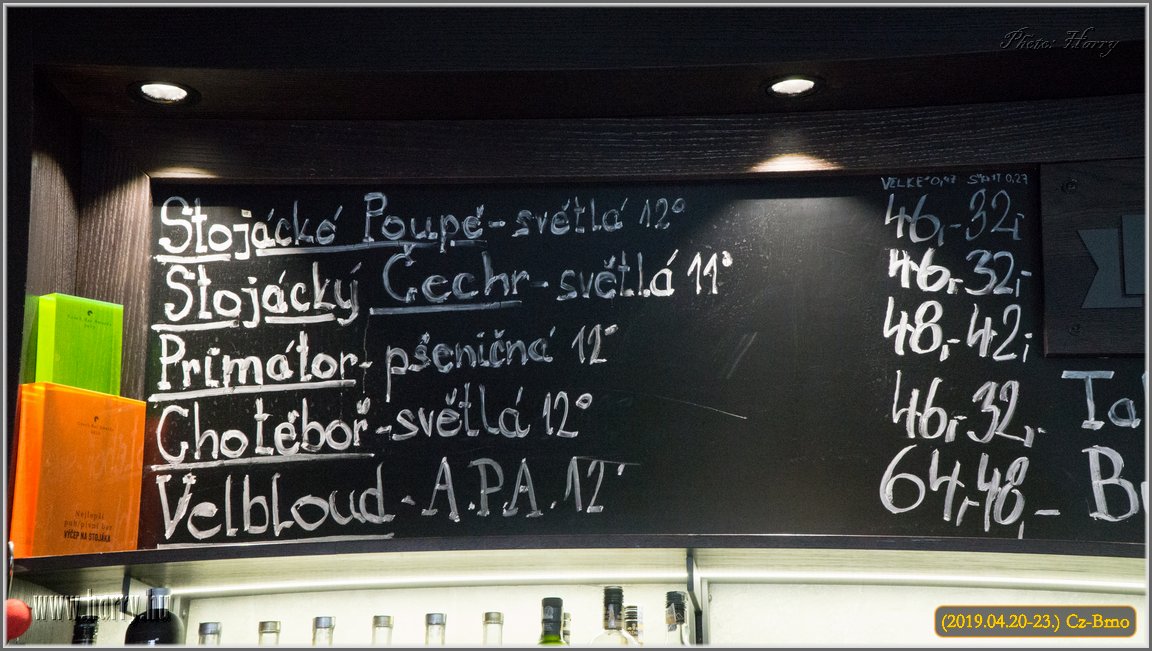 Photo: Harry
VELKÉ 0,4l
Stojácké Poupě - světlá 12° 46,- 32,-
Stojácký Čechr - světlá 11° 46,- 32,-
Primátor - pšeničná 12° 48,- 42,-
Chotěboř - světlá 12° 46,- 32,-
Velbloud - A.P.A. 12° 64,- 48,-
Nejlepší
pub/pivní bar
VÝČEP NA STOJÁKA
www.harry.hu
(2019.04.20-23.) Cz-Brno